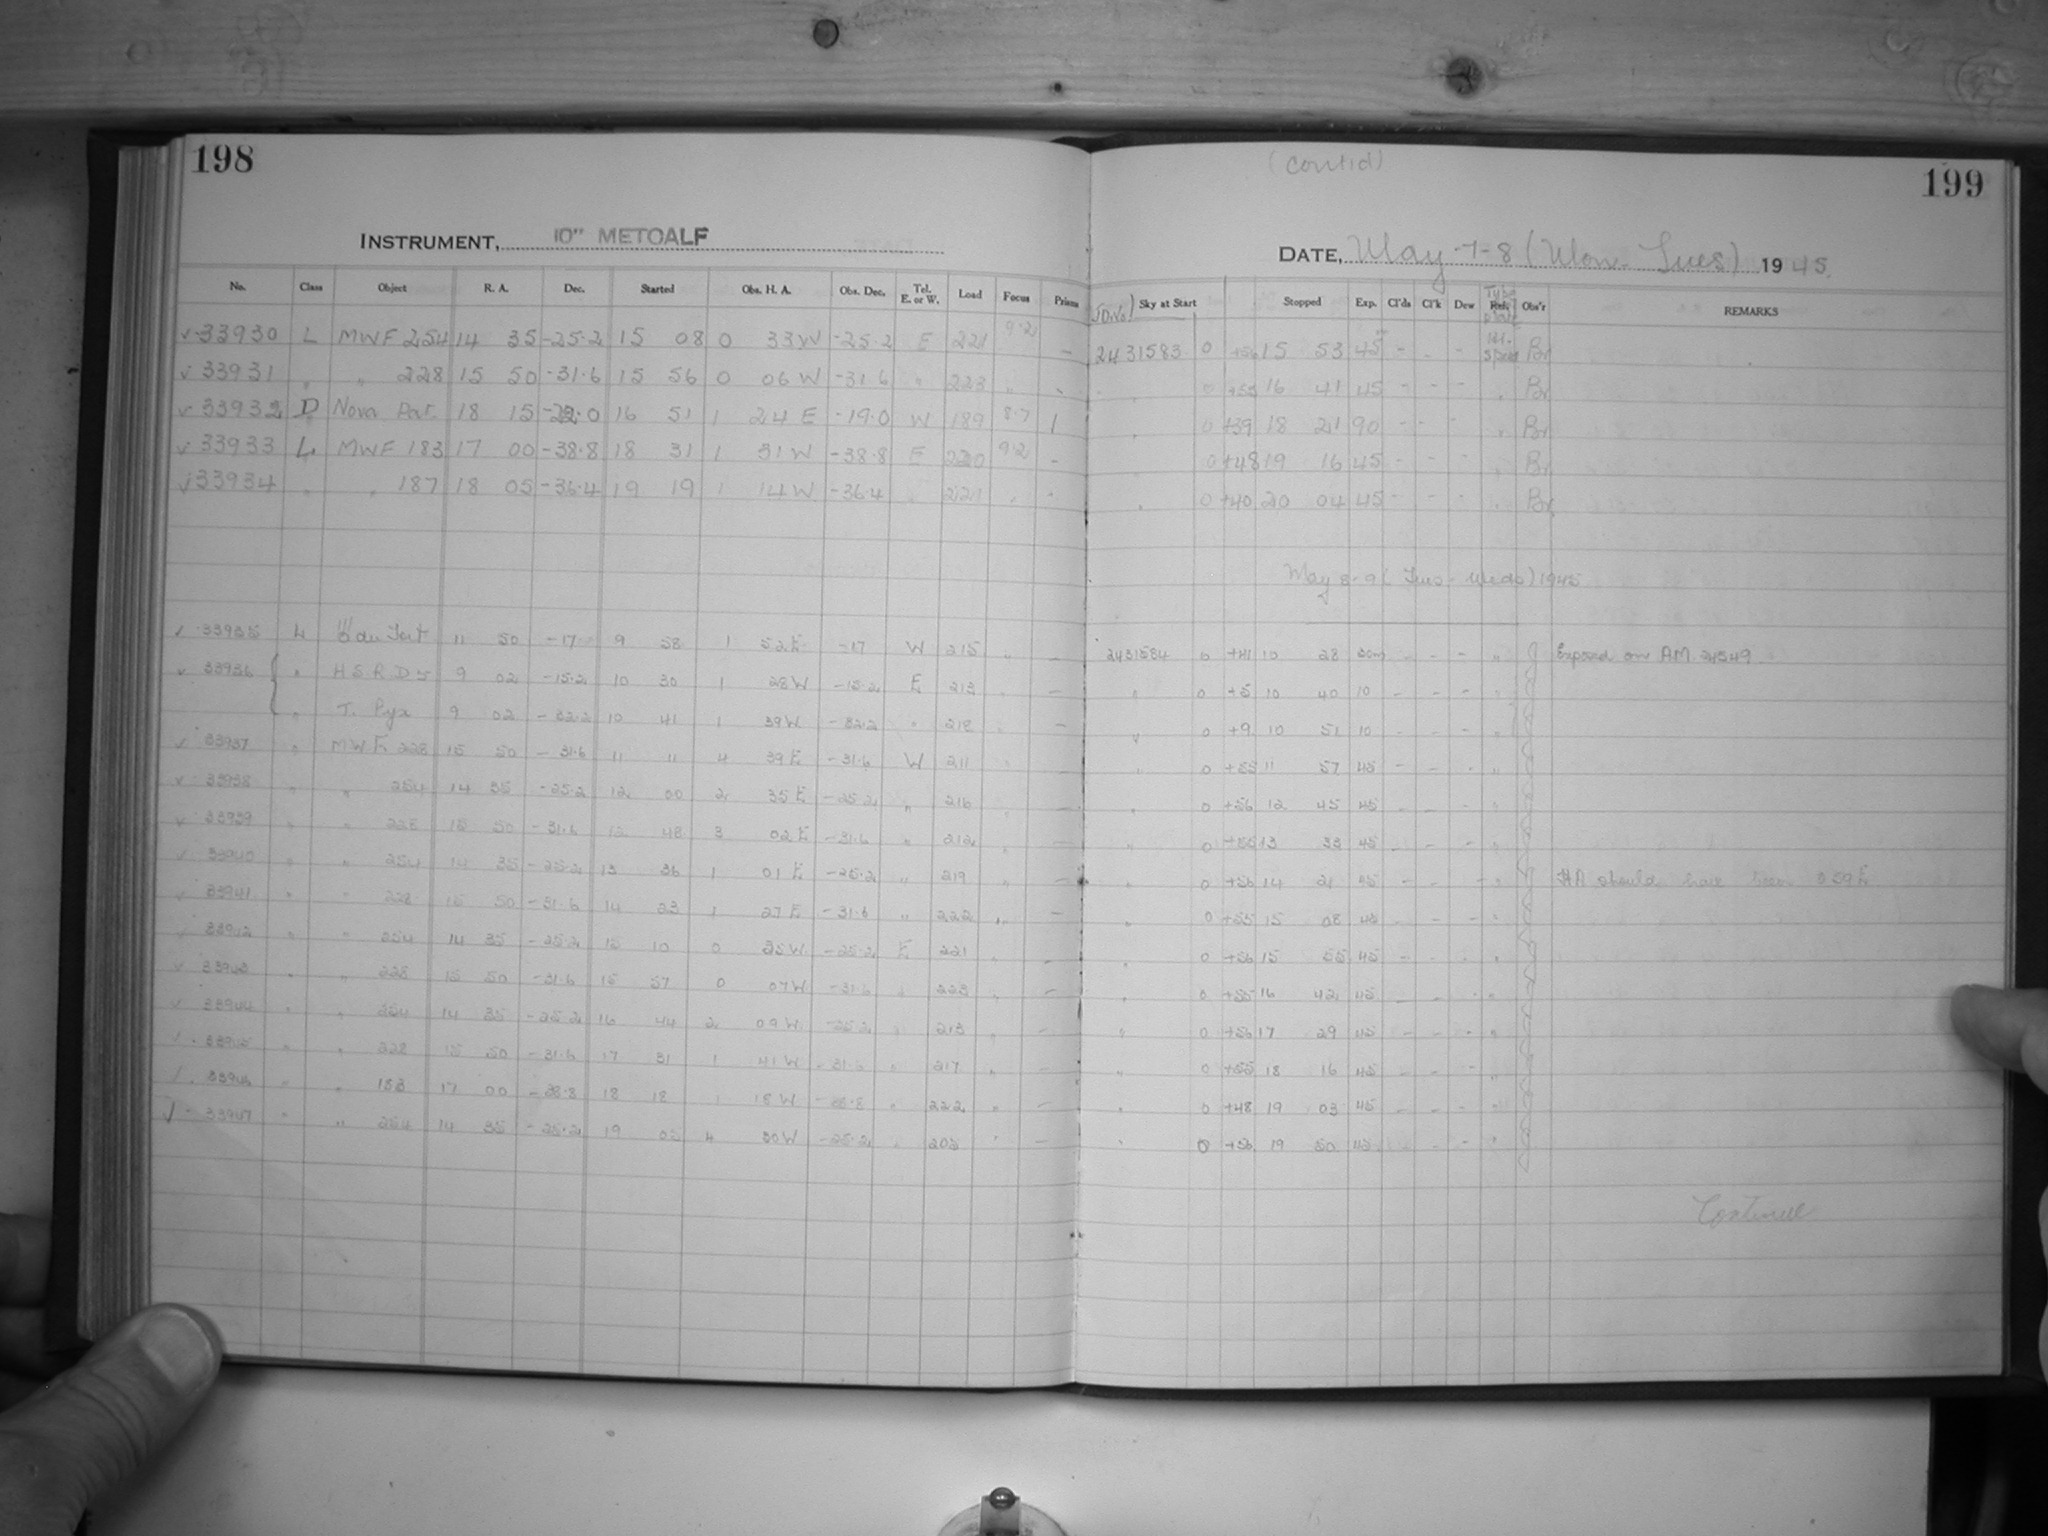 198
(Contid)
199
INSTRUMENT, 10" METCALF
DATE, May 7-8 (Mon-Tues) 1945.
No. Class Object R. A. Dec. Started Obs. H. A. Obs. Dec. Tel. E. or W. Load Focus Prism J.D.No. Sky at Start Stopped Exp. Cl'ds Cl'k Dew Type Plate Obs'r REMARKS
33930 L MWF 254 14 35 -25.2 15 08 0 33W -25.2 E 221 9.2 - 2431583 0 +56 15 53 45 - - - Br
33931 " " 228 15 50 -31.6 15 56 0 06W -31.6 " 223 " - " 0 +55 16 41 45 - - - " Br
33932 D Nova 18 15 16 51 1 24 E -19.0 W 189 8.7 1 " 0 +39 18 21 90 - - - " Br
33933 L MWF 183 17 00 -38.8 18 31 1 31W -38.8 E 220 9.2 - " 0 +48 19 16 45 - - - " Br
33934 " " 187 18 05 -36.4 19 19 1 14W -36.4 " 221 " - " 0 +40 20 04 45 - - - " Br
May 8-9 (Tues-Weds) 1945
33935 L 11 50 -17 9 58 1 52E -17 W 215 " - 2431584 0 +41 10 28 30m - - - " Exposed on AM 24549
33936 " H.S.R.D 5 9 02 -15.2 10 30 1 28W -15.2 E 213 " - " 0 +5 10 40 10 - - - "
" T. Pyx 9 02 -32.2 10 41 1 39W -32.2 " 212 " - " 0 +9 10 51 10 - - - "
33937 " M.W.F. 228 15 50 -31.6 11 11 4 39E -31.6 W 211 " - " 0 +55 11 57 45 - - - "
33938 " " 254 14 35 -25.2 12 00 2 35E -25.2 " 216 " - " 0 +56 12 45 45 - - - "
33939 " " 228 15 50 -31.6 12 48 3 02E -31.6 " 212 " - " 0 +55 13 33 45 - - - "
33940 " " 254 14 35 -25.2 13 36 1 01E -25.2 " 219 " - " 0 +56 14 21 45 - - - " HA should have been 0 59E
33941 " " 228 15 50 -31.6 14 23 1 27E -31.6 " 222 " - " 0 +55 15 08 45 - - - "
33942 " " 254 14 35 -25.2 15 10 0 35W -25.2 E 221 " - " 0 +56 15 55 45 - - - "
33943 " " 228 15 50 -31.6 15 57 0 07W -31.6 " 223 " - " 0 +55 16 42 45 - - - "
33944 " " 254 14 35 -25.2 16 44 2 09W -25.2 " 213 " - " 0 +56 17 29 45 - - - "
33945 " " 228 15 50 -31.6 17 31 1 41W -31.6 " 217 " - " 0 +55 18 16 45 - - - "
33946 " " 183 17 00 -38.8 18 18 1 18W -38.8 " 222 " - " 0 +48 19 03 45 - - - "
33947 " " 254 14 35 -25.2 19 05 4 30W -25.2 " 205 " - " 0 +56 19 50 45 - - - "
Continue